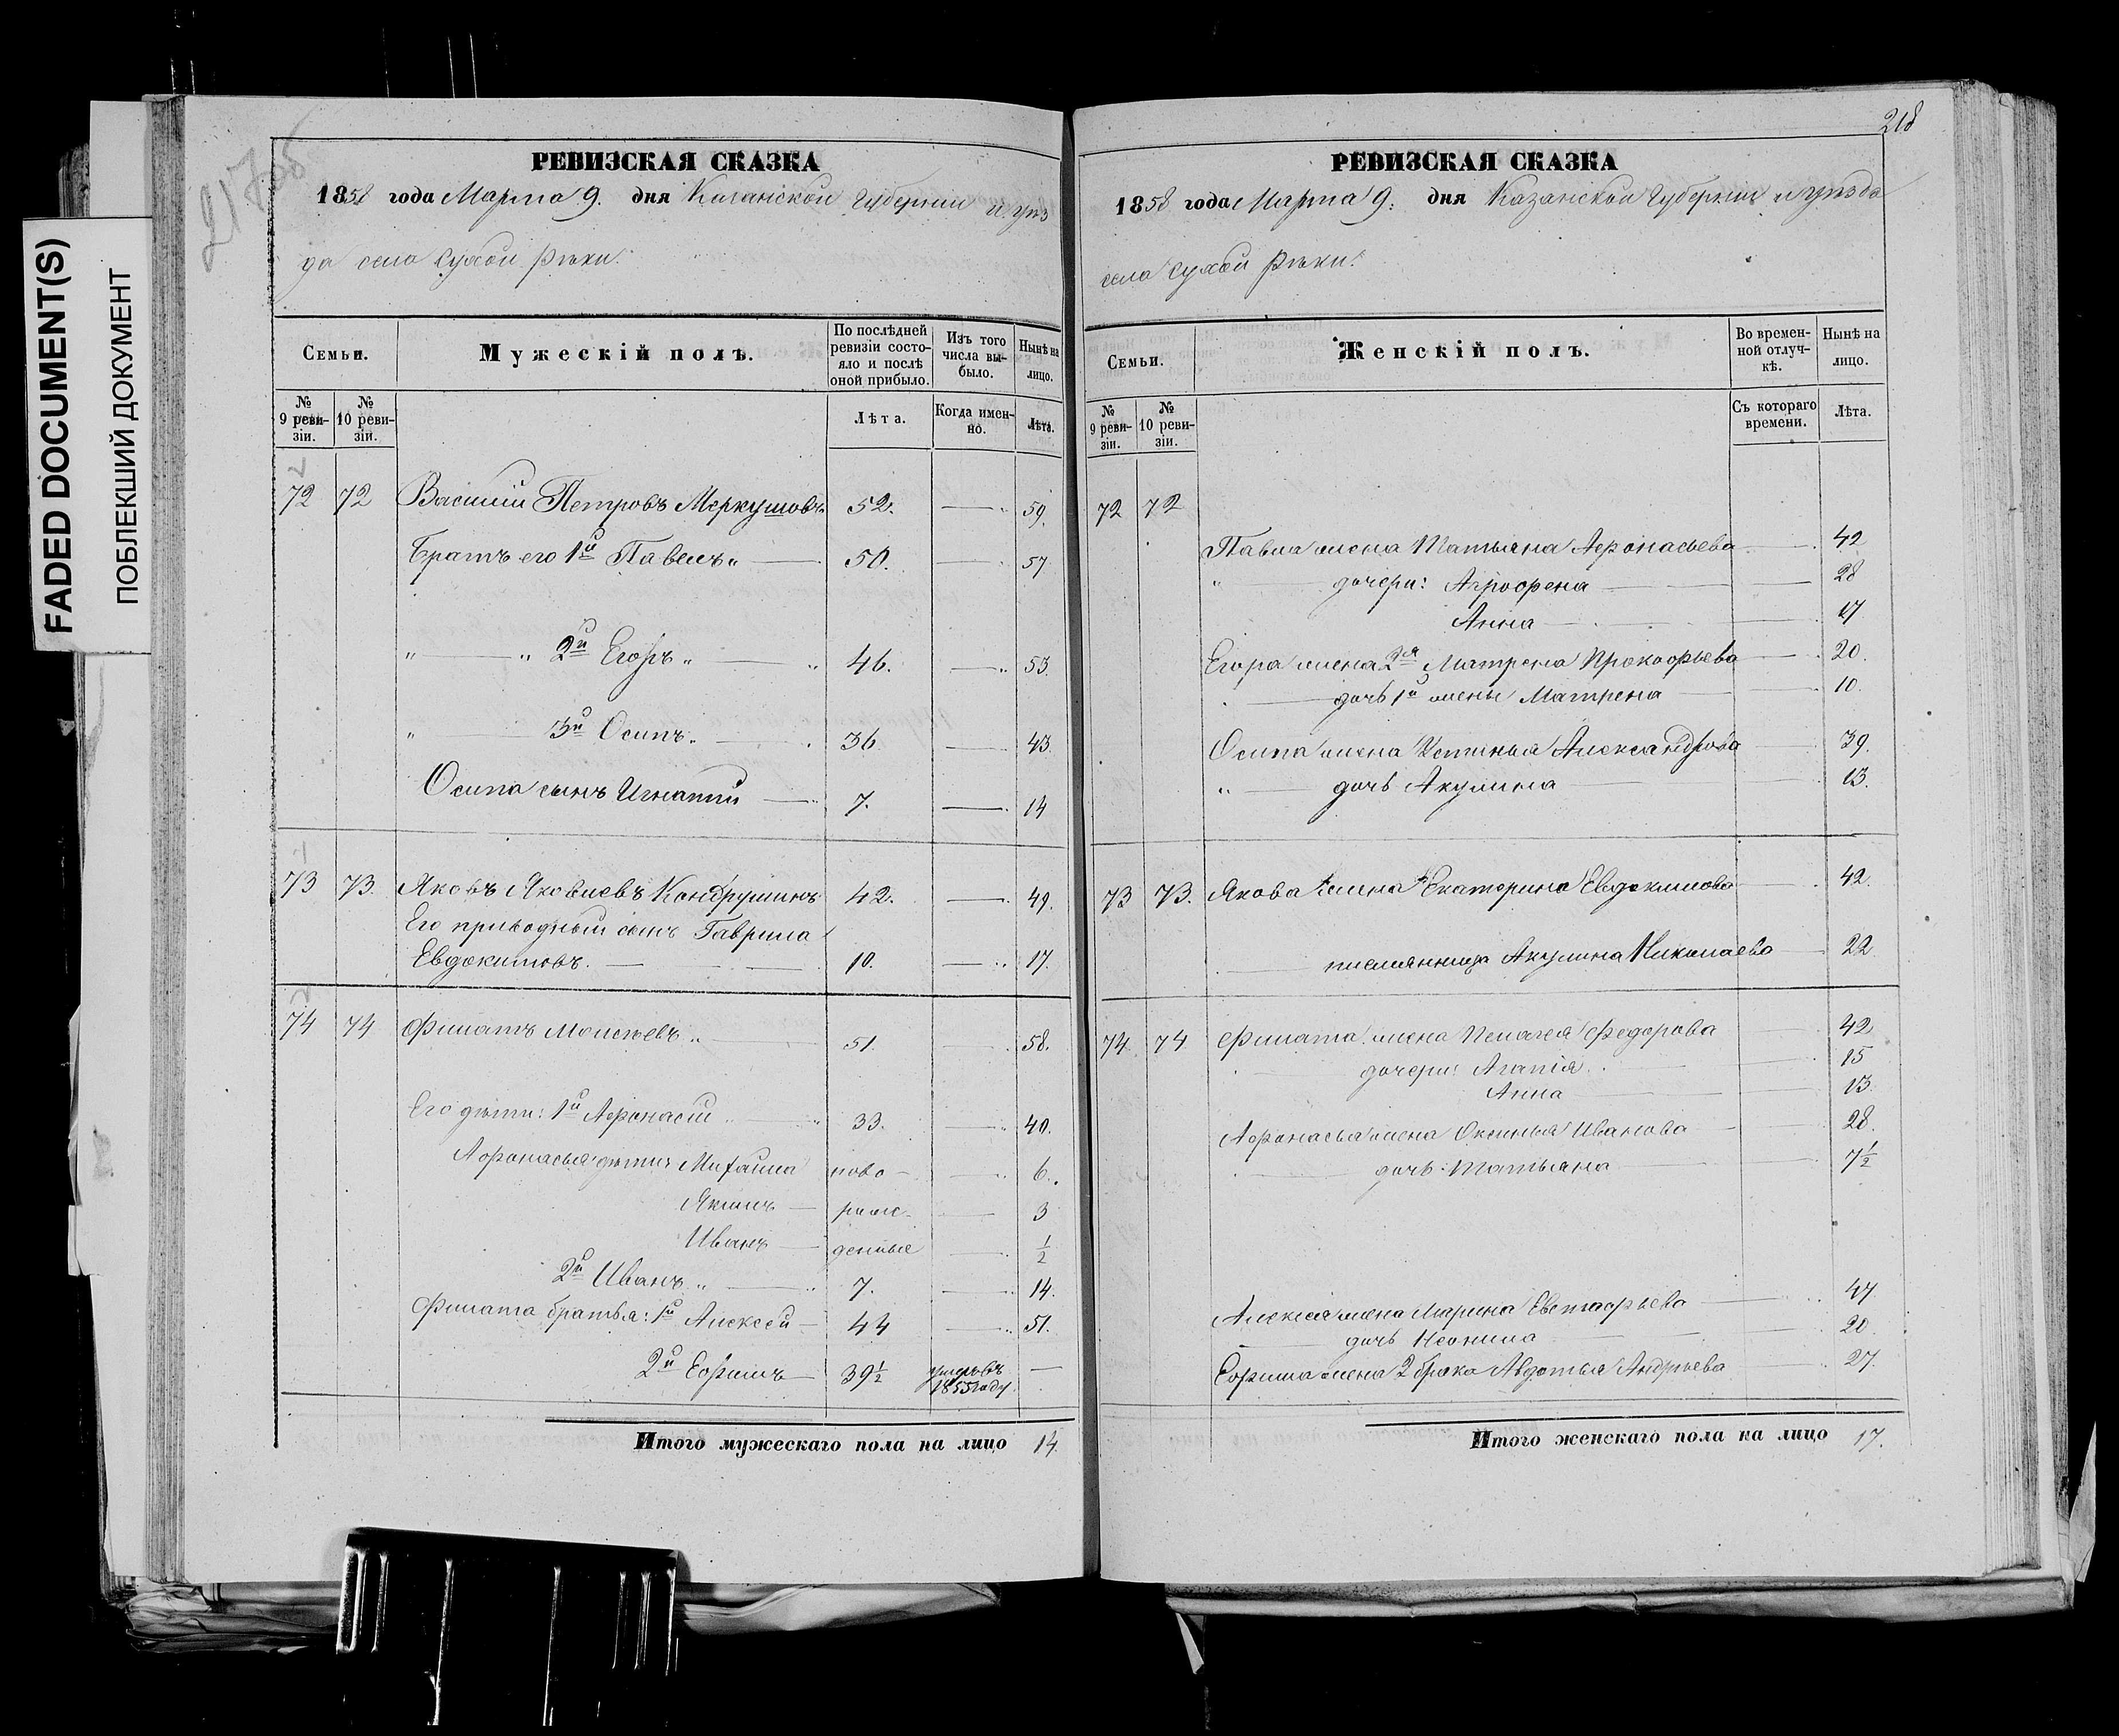 FADED DOCUMENT(S)
ПОБЛЕКШИЙ ДОКУМЕНТ
217 об
РЕВИЗСКАЯ СКАЗКА
1858 года Марта 9. дня Казанской Губернии и уѣз
да села Сухой Рѣки.
Семьи.
Мужескій полъ.
По послѣдней ревизіи состо-
яло и послѣ
оной прибыло.
Изъ того
числа вы-
было.
Нынѣ на
лицо.
№
9 реви-
зіи.
№
10 реви-
зіи.
Лѣта.
Когда имен-
но.
Лѣта.
72 72 Василій Петровъ Меркушовъ 52. 59.
Братъ его 1й Павелъ „ 50. 57
„ „ 2й Егоръ „ „ 46. 53.
„ 3й Осипъ „ 36 43.
Осипа сынъ Игнатій 7. 14
73 73. Яковъ Яковлевъ Кондрушинъ 42. 49.
Его приводный сынъ Гаврила
Евдокимовъ. 10. 17.
74 74 Филатъ Моисѣевъ „ 51. 58.
Его дѣти: 1й Афонасій „ 33. 40.
Афонасья дѣти: Михайла ново- 6.
Якимъ рож- 3
Иванъ денные 1/2
2й Иванъ „ 7. 14.
Филата братья: 1й Алексѣй 44 51.
2й Ефимъ 39 1/2 умеръ въ
1855 году
Итого мужескаго пола на лицо 14.
218
РЕВИЗСКАЯ СКАЗКА
1858 года Марта 9. дня Казанской Губерніи и уѣзда
села Сухой Рѣки.
Семьи.
Женскій полъ.
Во времен-
ной отлуч-
кѣ.
Нынѣ на
лицо.
№
9 реви-
зіи.
№
10 реви-
зіи.
Съ котораго
времени.
Лѣта.
72 72
Павла жена Татьяна Афонасьева 42
„ дочери: Агрофена 28
Анна 17
Егора жена 2я Матрена Прокофьева 20.
дочь 1й жены Матрена 10.
Осипа жена Устинья Александрова 39.
„ дочь Акулина 13.
73 73. Якова жена Екатерина Евдокимова 42.
племянница Акулина Николаева 22
74 74 Филата жена Пелагея Федорова 42
дочери: Агапія 15
Анна 13.
Афонасья жена Оксинья Иванова 28.
дочь Татьяна 7 1/2
Алексѣя жена Марина Евстафьева 47
дочь Неонила 20
Ефима жена 2 брака Авдотья Андрѣева 27.
Итого женскаго пола на лицо 17.